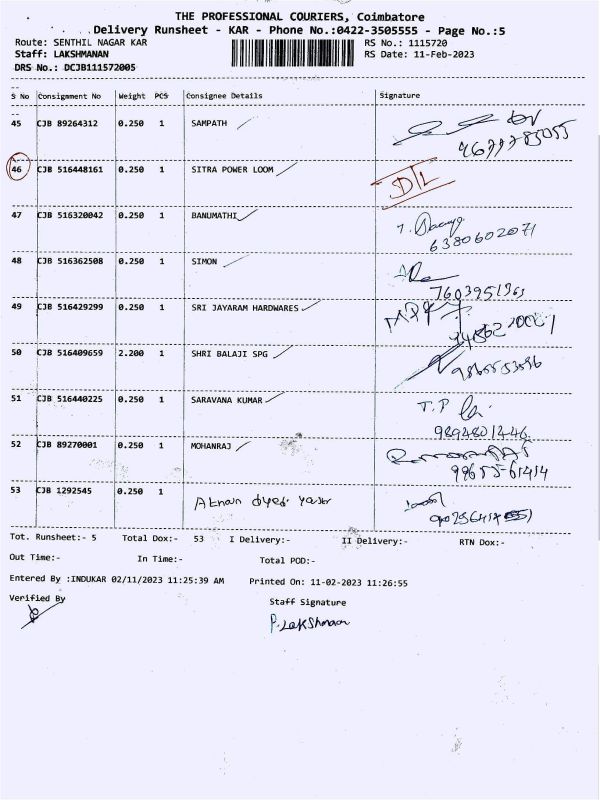 THE PROFESSIONAL COURIERS, Coimbatore
Delivery Runsheet - KAR - Phone No.:0422-3505555 - Page No.:5
Route: SENTHIL NAGAR KAR RS No.: 1115720
Staff: LAKSHMANAN RS Date: 11-Feb-2023
DRS No.: DCJB111572005
S No Consignment No Weight PCS Consignee Details Signature
45 CJB 89264312 0.250 1 SAMPATH
46 CJB 516448161 0.250 1 SITRA POWER LOOM D/L
47 CJB 516320042 0.250 1 BANUMATHI
6380602071
48 CJB 516362508 0.250 1 SIMON
7603951963
49 CJB 516429299 0.250 1 SRI JAYARAM HARDWARES
50 CJB 516409659 2.200 1 SHRI BALAJI SPG
51 CJB 516440225 0.250 1 SARAVANA KUMAR T.P
9894801246
52 CJB 89270001 0.250 1 MOHANRAJ
99655-61414
53 CJB 1292545 0.250 1
Tot. Runsheet:- 5 Total Dox:- 53 I Delivery:- II Delivery:- RTN Dox:-
Out Time:- In Time:- Total POD:-
Entered By :INDUKAR 02/11/2023 11:25:39 AM Printed On: 11-02-2023 11:26:55
Verified By Staff Signature
P.Lakshmanan